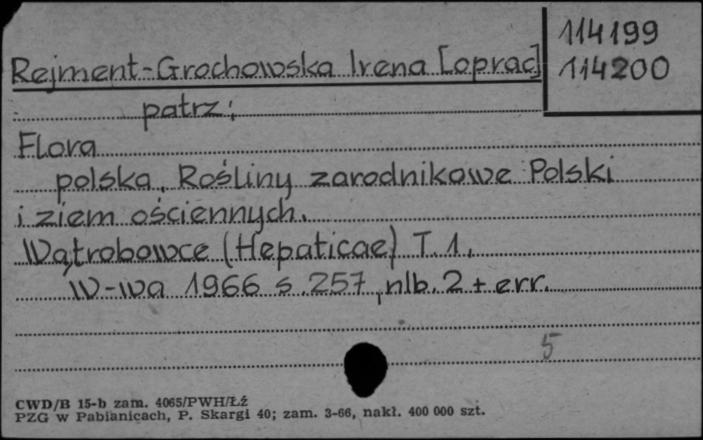 114199
114200
Rejment-Grochowska Irena [oprac]
patrz:
Flora
polska. Rośliny zarodnikowe Polski
i ziem ościennych.
Wątrobowce (Hepaticae) T. 1.
W-wa 1966 s. 257, nlb. 2 + err.
5
CWD/B 15-b zam. 4065/PWH/Łź
PZG w Pabianicach, P. Skargi 40; zam. 3-66, nakł. 400 000 szt.